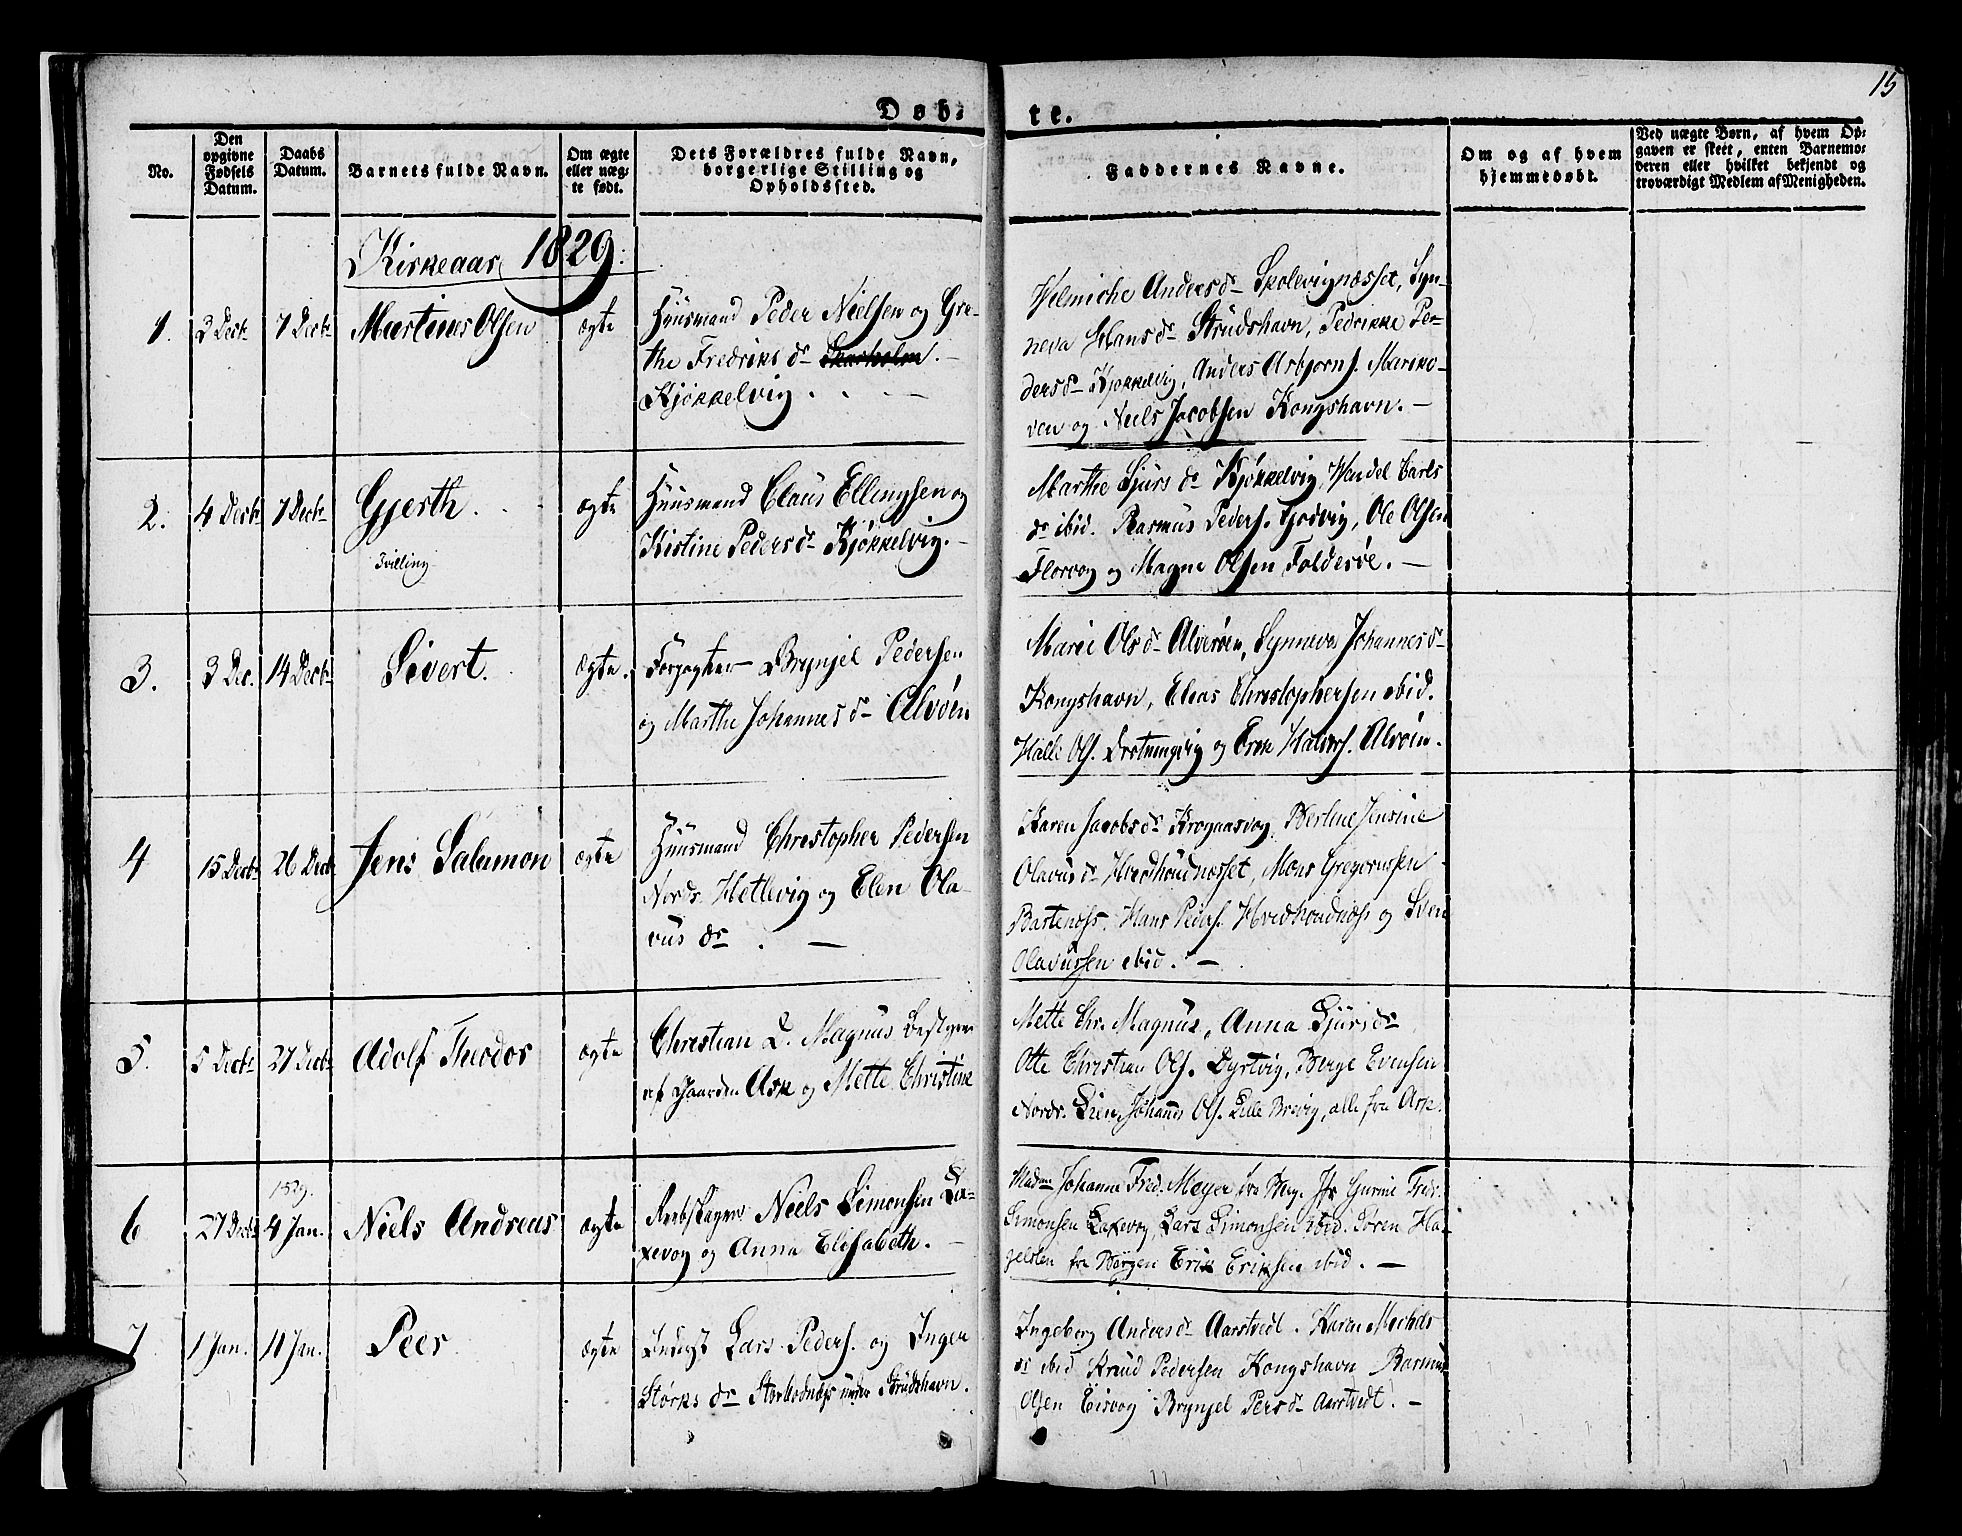 15
Døb-
te.
No.
Den
opgivne
Fødsels
Datum.
Daabs
Datum.
Barnets fulde Navn.
Om ægte
eller uæg-
te født.
Dets Forældres fulde Navn,
borgerlige Stilling og
Opholdssted.
Faddernes Navne.
Om og af hvem
hjemmedøbt.
Ved uægte Børn, af hvem Op-
gaven er skeet, enten Barnemo-
deren eller hvilket bekjendt og
troværdigt Medlem af Menigheden.
Kirkeaar 1829.
1. 3 Decbr 7 Decbr Martinus Olsen ægte
Huusmand Peder Nielsen og Gre-
the Fredriks dr Skarholm. -
Kjøkkelvig . . . -
Helmiche Anders dr Skolevignæsset, Syn-
neva Hans dr Strudshavn, Pedrikke Pe-
ders dr Kjøkkelvig, Anders Asbjørns. Mareko-
ven og Niels Jacobsen Kongshavn. -
2. 4 Decbr 7 Decbr Gjerth. ægte
Tvilling
Huusmand Claus Ellingsen og
Kistine Peders dr Kjøkkelvig. -
Marthe Sjurs dr Kjøkkelvig, Wendel Carls
dr ibid. Rasmus Peders. Godvig, Ole Olsen
Florvog og Magne Olsen Folderøe. -
3. 3 Dec. 14 Decbr Sivert. ægte.
Forpagter Brynjel Pedersen
og Marthe Johannes dr Alvøen
Marie Ols dr Alverøen, Synneva Johannes dr
Kongshavn, Elias Christophersen ibid.
Halle Ols. Drotningvig og Erik Halvors. Alvøin.
4 15 Decbr 26 Decbr Jens Salamon ægte
Huusmand Christopher Pedersen
Nordr. Hetlevig og Elen Ola-
vus dr . -
Karen Jacobs dr Krogaasvog, Berline Jensine
Olavus dr Hvedhoudnæsset, Mons Gregoriussen
Bartenæss. Hans Peders. Hvedhoudnæss og Sven
Olavussen ibid. -
5. 5 Decbr 27 Decbr Adolf Theodor ægte
Christian L. Magnus Bestyrer
af Gaarden Ask og Mette Christine
Mette Chr. Magnus, Anna Sjuris dr
Otte Christian Ols. Dyrtvig, Berge Evensen
Nordr. Lien, Johannes Ols. Lille Brevig, alle fra Ask.
6 27 Decbr 1829. 4 Jan. Niels Andreas ægte
Niels Simonsen La-
xevog og Anna Elisabeth. -
Madme Johanne Fred. Meyer fra Berg. Jfr Gurine Fredr.
Simonsen Laxevog, Lars Simonsen ibid. Søren Ha-
gelsten fra Bergen Erik Eriksen ibid. -
7 1 Jan. 11 Jan. Peer ægte
Inderst Lars Peders. og Inger
Størks dr Storbodnæss under Strudshavn.
Ingeborg Anders dr Aarstvedt. Karen Michels
dr ibid Knud Pedersen Kongshavn Rasmus
Olsen Eisvog Brynjel Pers dr Aarstvedt. -